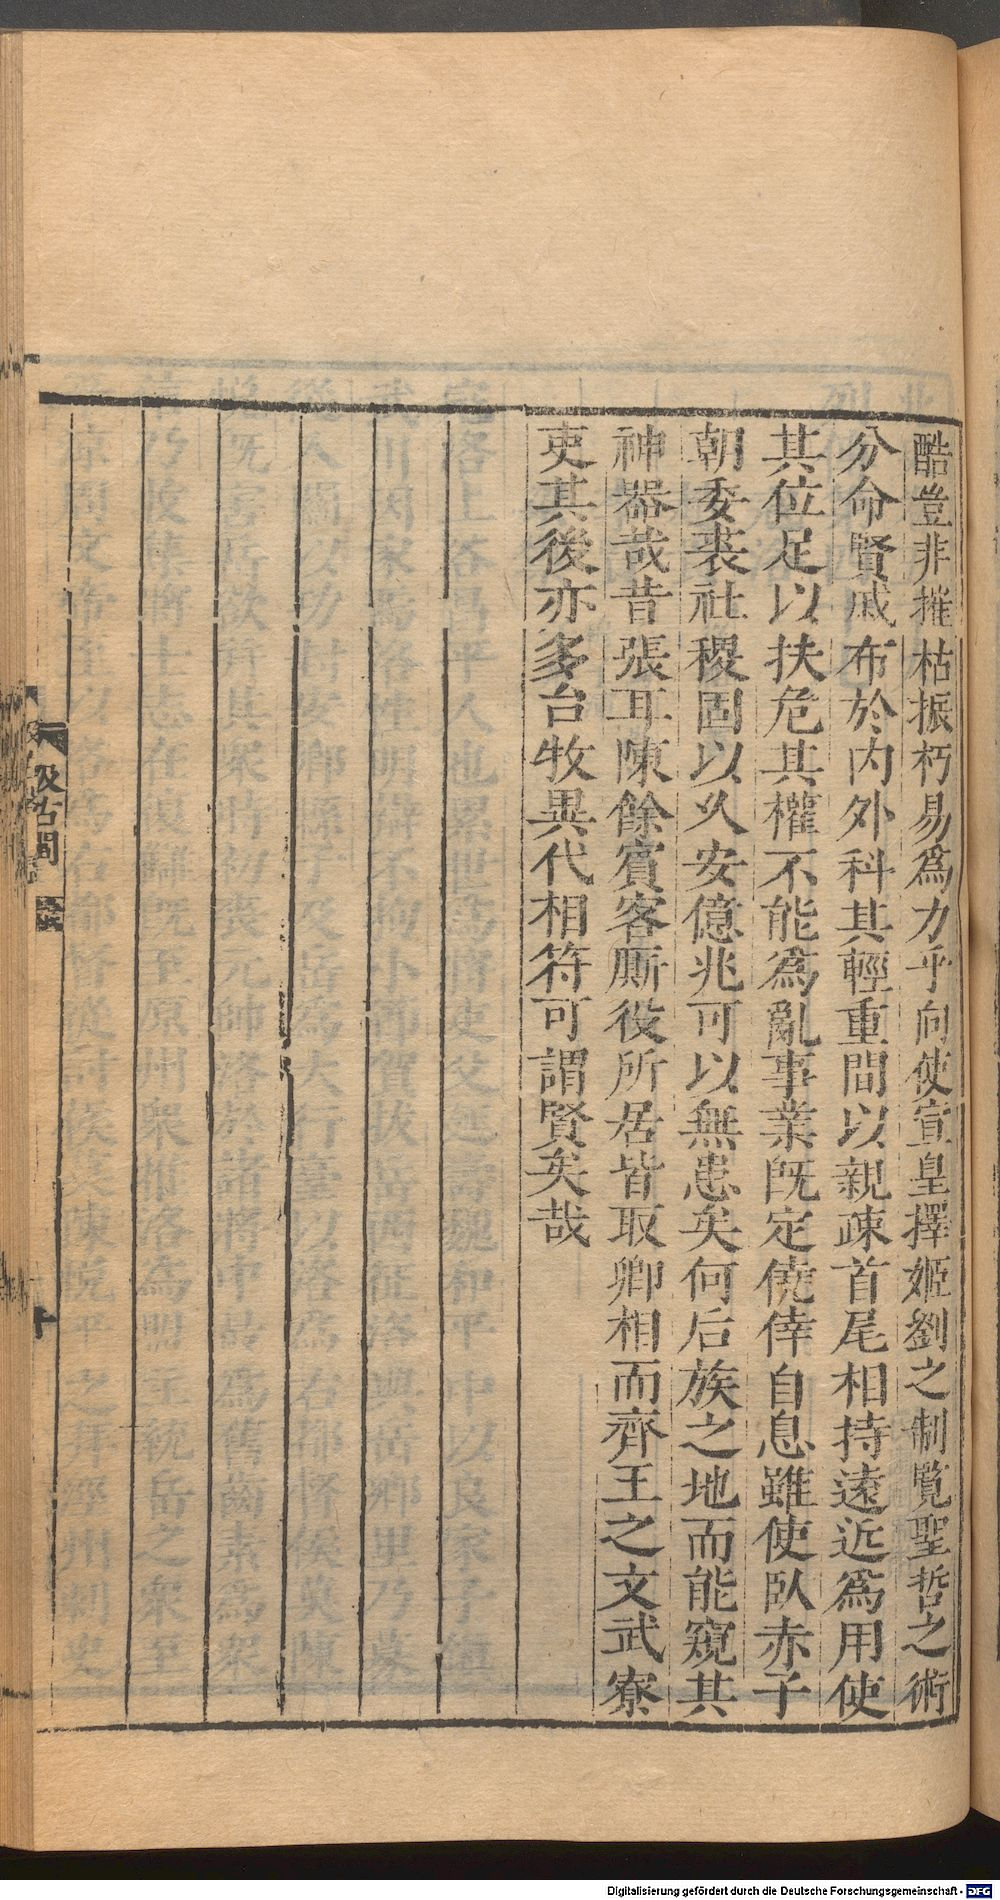 酷豈非摧枯振朽易爲力乎向使宣皇擇姬劉之制覽聖哲之術
分命賢戚布於内外科其輕重間以親疎首尾相持遠近爲用使
其位足以扶危其權不能爲亂事業既定僥倖自息雖使臥赤子
朝委裘社稷固以久安億兆可以無患矣何后族之地而能窺其
神器哉昔張耳陳餘賓客厮役所居皆取卿相而齊王之文武寮
吏其後亦多台牧異代相符可謂賢矣哉
汲古閣
Digitalisierung gefördert durch die Deutsche Forschungsgemeinschaft - DFG